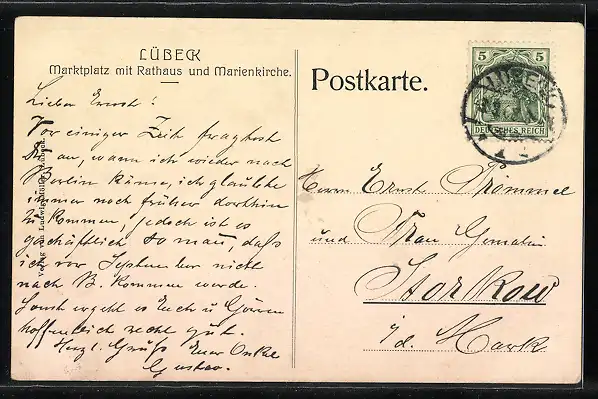 LÜBECK
Marktplatz mit Rathaus und Marienkirche.
Postkarte.
5 5
DEUTSCHES REICH
Lieber Ernst!
Vor einiger Zeit fragtest
Du an, wann ich wieder nach
Berlin käme, ich glaubte
immer noch früher dorthin
zu kommen, jedoch ist es
geschäftlich so mau, daß
ich vor September nicht
nach B. kommen werde.
Sonst ergeht es Euch u Gören
hoffentlich recht gut.
Herzl. Gruß Euer Onkel
Gustav.
Herrn Ernst Trömmel
und Frau Gemalin
Storkow
i/d. Mark
Verlag